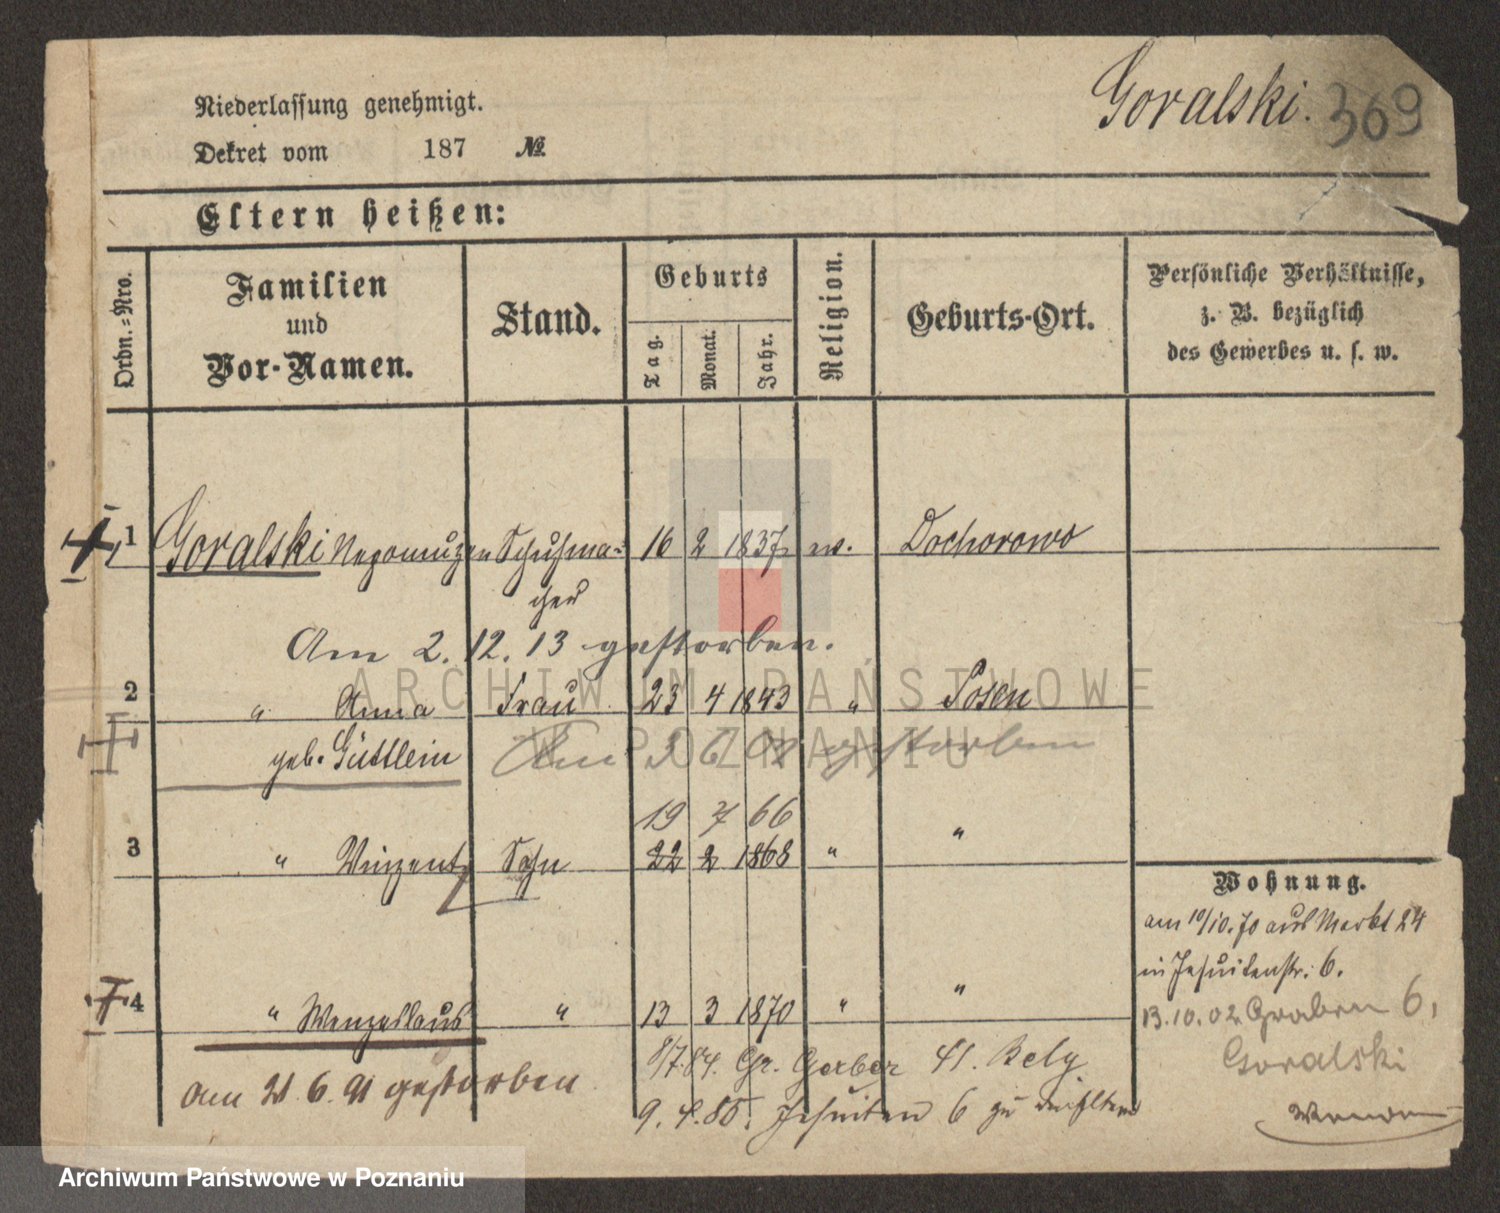 Goralski. 369
Niederlassung genehmigt.
Dekret vom 187 №
Eltern heißen:
Ordn.=Nro.
Familien
und
Vor-Namen.
Stand.
Geburts
Tag.
Monat.
Jahr.
Religion.
Geburts-Ort.
Persönliche Verhältnisse,
z. B. bezüglich
des Gewerbes u. s. w.
1 Goralski Nepomuzen Schuhma- 16 2 1837 Dochorowo
cher
Am 2. 12. 13 gestorben.
2 " Anna Frau 23 4 1843 " Posen
geb. Güttlein Am 3 6 gestorben
19 7 66
3 " Vinzent Sohn 22 2 1868 " "
Wohnung.
am 10/10.70 aus Markt 24
in Jesuitenstr. 6.
4 " Wenzeslaus " 13 3 1870 " "
13.10.02 Graben 6,
Goralski
am 21. 6. 91 gestorben
8/7.84. Gr. Gerber 41.
9. 4. 85. Jesuiten 6 zu
ARCHIWUM PAŃSTWOWE
W POZNANIU
Archiwum Państwowe w Poznaniu